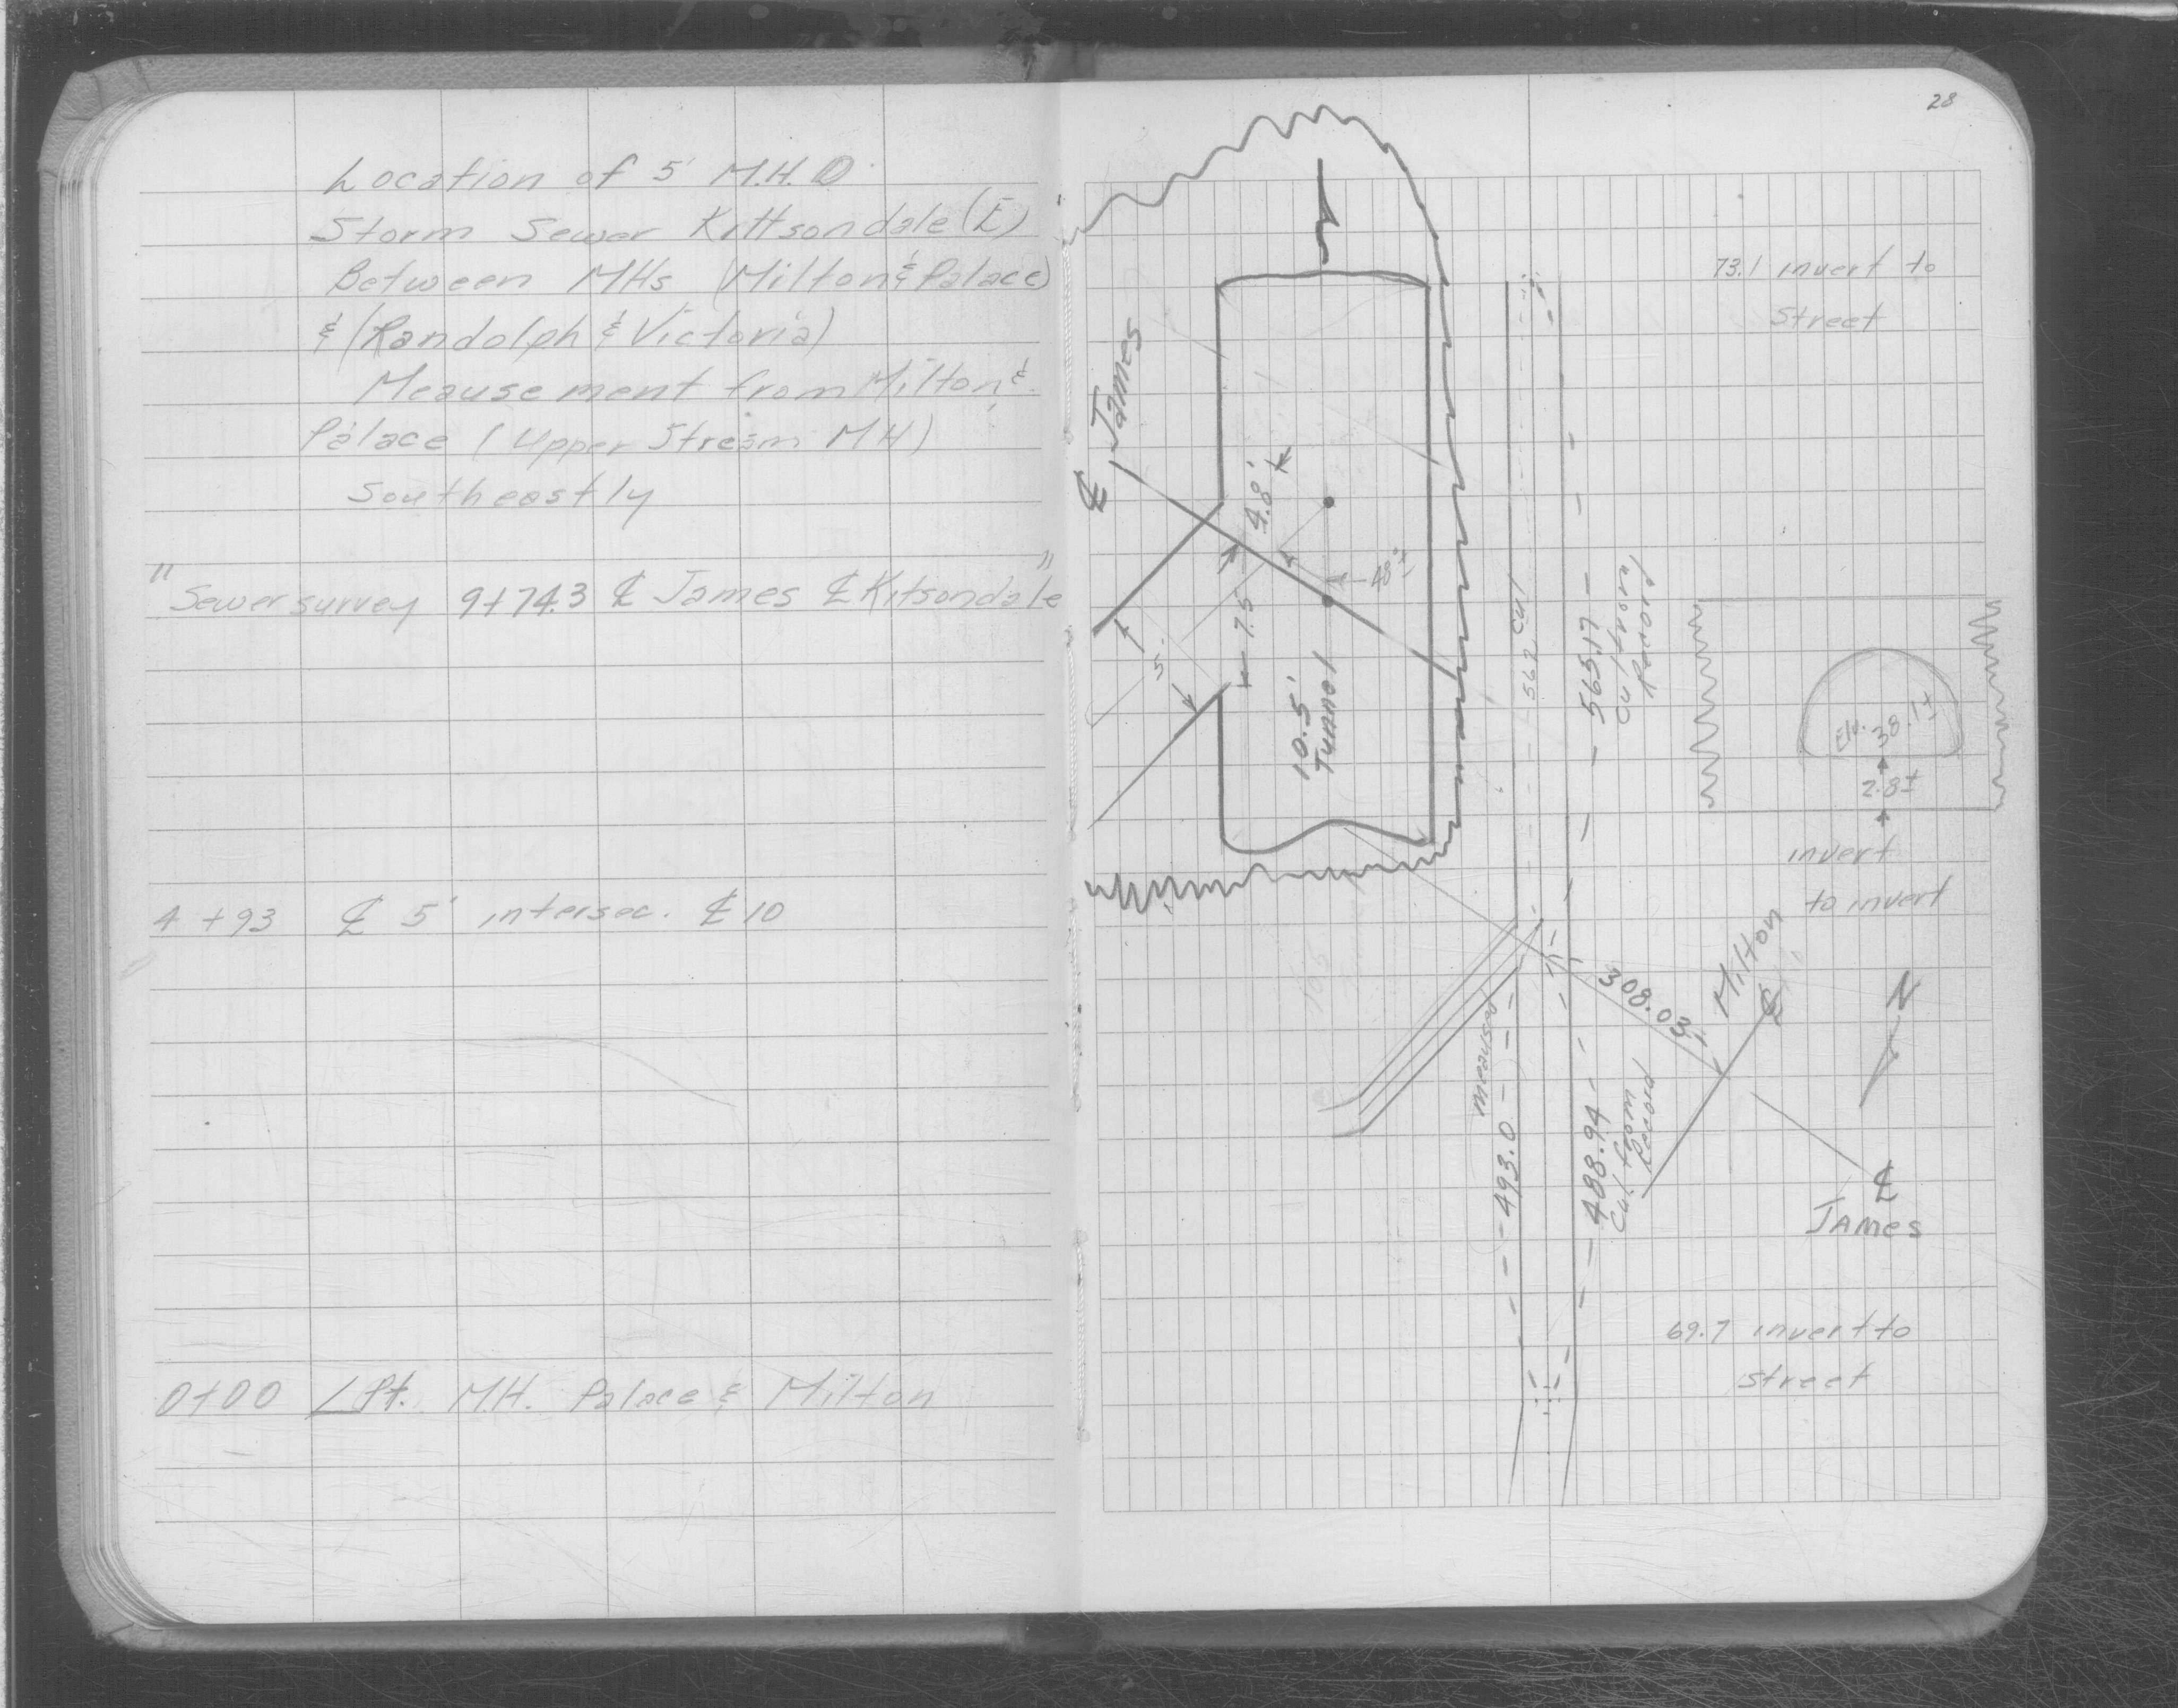 Location of 5' M.H. O
Storm Sewer Kittsondale (E)
Between MHs (Milton & Palace)
& (Randolph & Victoria)
Meausement from Milton &
Palace (Upper Stream MH)
Southeastly
"Sewer survey 9+74.3 ℄ James ℄ Kitsondale"
4+93 ℄ 5' intersec. ℄ 10
0+00 ∠Pt. M.H. Palace & Milton
28
73.1 invert to
Street
℄ James
4.8'
48±
7.5
5'
10.5'
Tunnel
562 Cut
565.17
Cut from
Record
Elv. 38.1±
2.8±
invert
to invert
Milton
℄
308.03
N
meausred
493.0
488.94
Cut from
Record
℄
JAMES
69.7 invert to
street